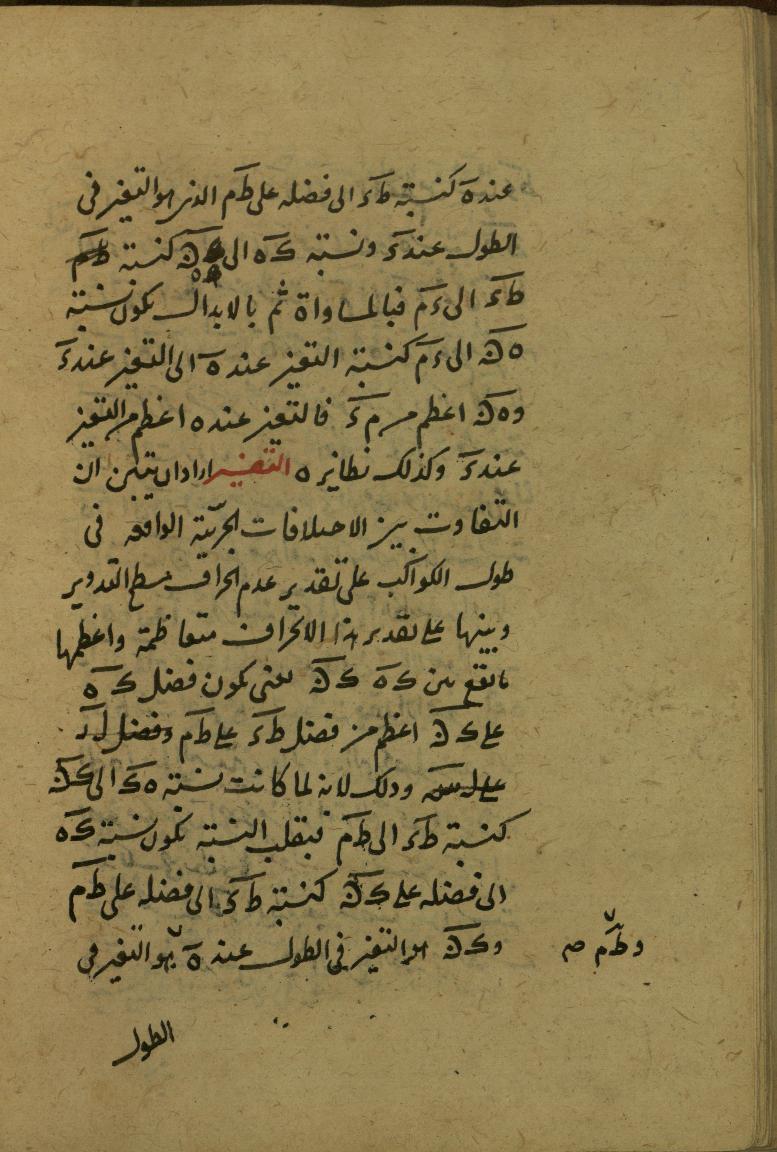 عند ه كنسبته ط ء الى فضله على ط م الذى هو التغير فى
الطول عند ء ونسبته ك ه الى ه ن كنسبته
ط ء الى ء م فبالمساواة ثم بالابدال يكون نسبته
ه ن الى ء م كنسبته التغير عند ه الى التغير عند ء
و ه ن اعظم من م ء فالتغير عند ه اعظم من التغير
عند ء وكذلك نظايره التفسير اراد ان يتبين ان
التفاوت بين الاختلافات الجزئية الواقعه فى
طول الكواكب على تقدير عدم انحراف سطح التدوير
وبينها على تقدير هذا الانحراف متعاظمة واعظمها
ما يقع بين ك ه ك ن يعنى يكون فضل ك ه
على ك ن اعظم من فضل ط ء على ط م وفضل
على وذلك لانه لما كانت نسبته ه ك الى ك ن
كنسبته ط ء الى ط م فبقلب النسبته يكون نسبته ك ه
الى فضله على ك ن كنسبته ط ء الى فضله على ط م
و ك ن هو التغير فى الطول عند ه هو التغير فى
و ط م صح
الطول